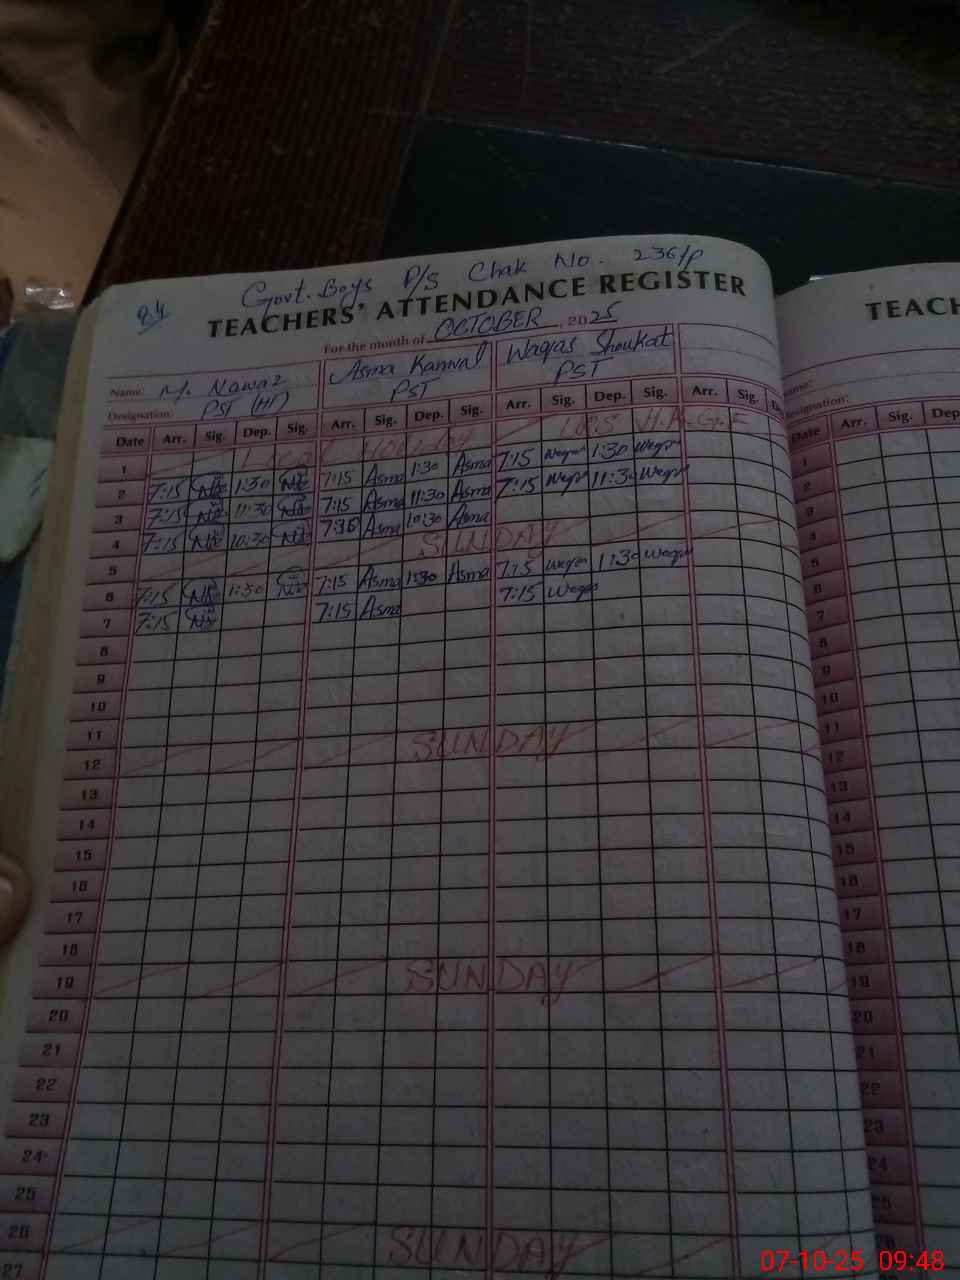 84
Govt. Boys P/S Chak No. 236/P
TEACHERS' ATTENDANCE REGISTER
For the month of OCTOBER, 2025
Name: M. Nawaz Asma Kanwal Waqas Shoukat
Designation: PST (HT) PST PST
Date Arr. Sig. Dep. Sig. Arr. Sig. Dep. Sig. Arr. Sig. Dep. Sig. Arr. Sig.
1 Local Holiday
2 7:15 1:30 7:15 Asma 1:30 Asma 7:15 Waqas 1:30 Waqas
3 7:15 11:30 7:15 Asma 11:30 Asma 7:15 Waqas 11:30 Waqas
4 7:15 10:30 Asma 10:30 Asma
5 SUNDAY
6 7:15 1:30 7:15 Asma 1:30 Asma 7:15 Waqas 11:30 Waqas
7 7:15 7:15 Asma 7:15 Waqas
8
9
10
11
12 SUNDAY
13
14
15
16
17
18
19 SUNDAY
20
21
22
23
24
25
26 SUNDAY
27
TEACH
Name:
Designation:
Date Arr. Sig. Dep
1
2
3
4
5
6
7
8
9
10
11
12
13
14
15
16
17
18
19
20
21
22
23
24
25
26
07-10-25 09:48